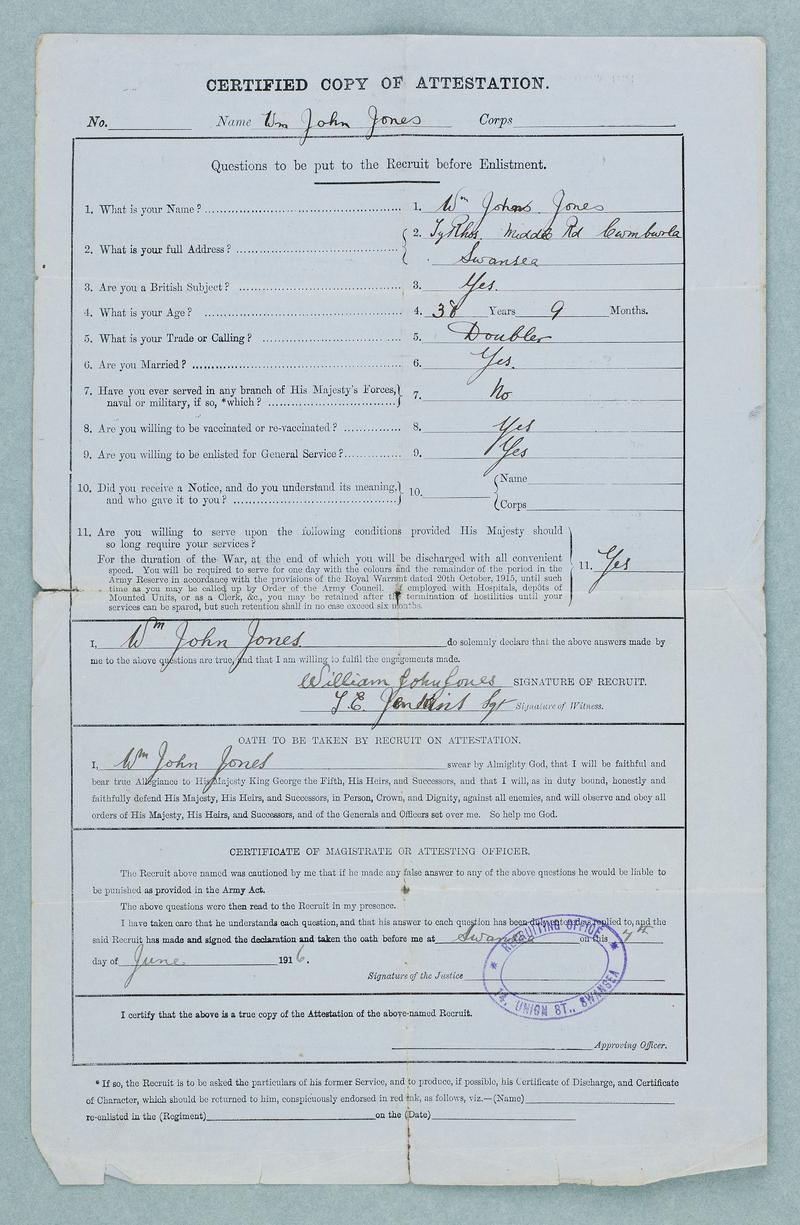 CERTIFIED COPY OF ATTESTATION.
No. Name Wm John Jones Corps
Questions to be put to the Recruit before Enlistment.
1. What is your Name? 1. Wm John Jones
2. What is your full Address? 2. TyRhos Middle Rd Cwmburla
Swansea
3. Are you a British Subject? 3. Yes.
4. What is your Age? 4. 38 Years 9 Months.
5. What is your Trade or Calling? 5. Doubler
6. Are you Married? 6. Yes.
7. Have you ever served in any branch of His Majesty's Forces,
naval or military, if so, *which? 7. No
8. Are you willing to be vaccinated or re-vaccinated? 8. Yes
9. Are you willing to be enlisted for General Service? 9. Yes
10. Did you receive a Notice, and do you understand its meaning,
and who gave it to you? 10. Name
Corps
11. Are you willing to serve upon the following conditions provided His Majesty should
so long require your services?
For the duration of the War, at the end of which you will be discharged with all convenient
speed. You will be required to serve for one day with the colours and the remainder of the period in the
Army Reserve in accordance with the provisions of the Royal Warrant dated 20th October, 1915, until such
time as you may be called up by Order of the Army Council. If employed with Hospitals, depôts of
Mounted Units, or as a Clerk, &c., you may be retained after the termination of hostilities until your
services can be spared, but such retention shall in no case exceed six months.
11. Yes
I, Wm John Jones do solemnly declare that the above answers made by
me to the above questions are true, and that I am willing to fulfil the engagements made.
William John Jones SIGNATURE OF RECRUIT.
T. E. Jenkins Sgt Signature of Witness.
OATH TO BE TAKEN BY RECRUIT ON ATTESTATION.
I, Wm John Jones swear by Almighty God, that I will be faithful and
bear true Allegiance to His Majesty King George the Fifth, His Heirs, and Successors, and that I will, as in duty bound, honestly and
faithfully defend His Majesty, His Heirs, and Successors, in Person, Crown, and Dignity, against all enemies, and will observe and obey all
orders of His Majesty, His Heirs, and Successors, and of the Generals and Officers set over me. So help me God.
CERTIFICATE OF MAGISTRATE OR ATTESTING OFFICER.
The Recruit above named was cautioned by me that if he made any false answer to any of the above questions he would be liable to
be punished as provided in the Army Act.
The above questions were then read to the Recruit in my presence.
I have taken care that he understands each question, and that his answer to each question has been duly entered as replied to, and the
said Recruit has made and signed the declaration and taken the oath before me at Swansea on this 7th
day of June 1916.
Signature of the Justice
RECRUITING OFFICE
14, UNION ST., SWANSEA
I certify that the above is a true copy of the Attestation of the above-named Recruit.
Approving Officer.
* If so, the Recruit is to be asked the particulars of his former Service, and to produce, if possible, his Certificate of Discharge, and Certificate
of Character, which should be returned to him, conspicuously endorsed in red ink, as follows, viz.—(Name)
re-enlisted in the (Regiment) on the (Date)